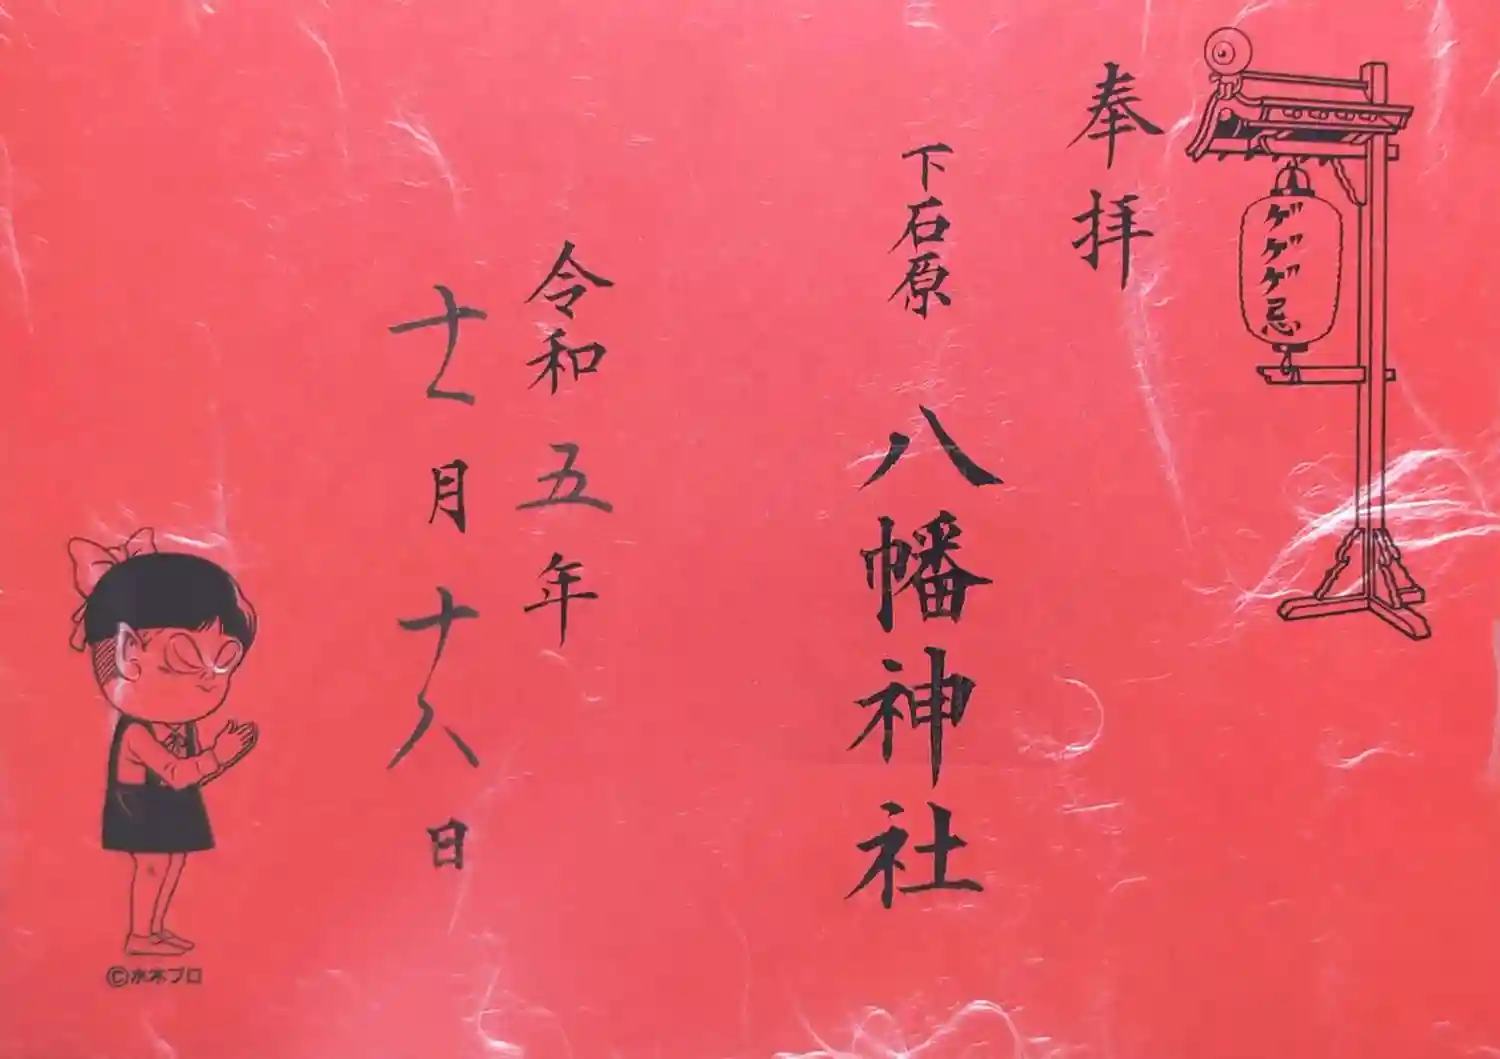 ゲゲゲ忌
奉拝
下石原 八幡神社
令和五年
十一月十八日
©水木プロ